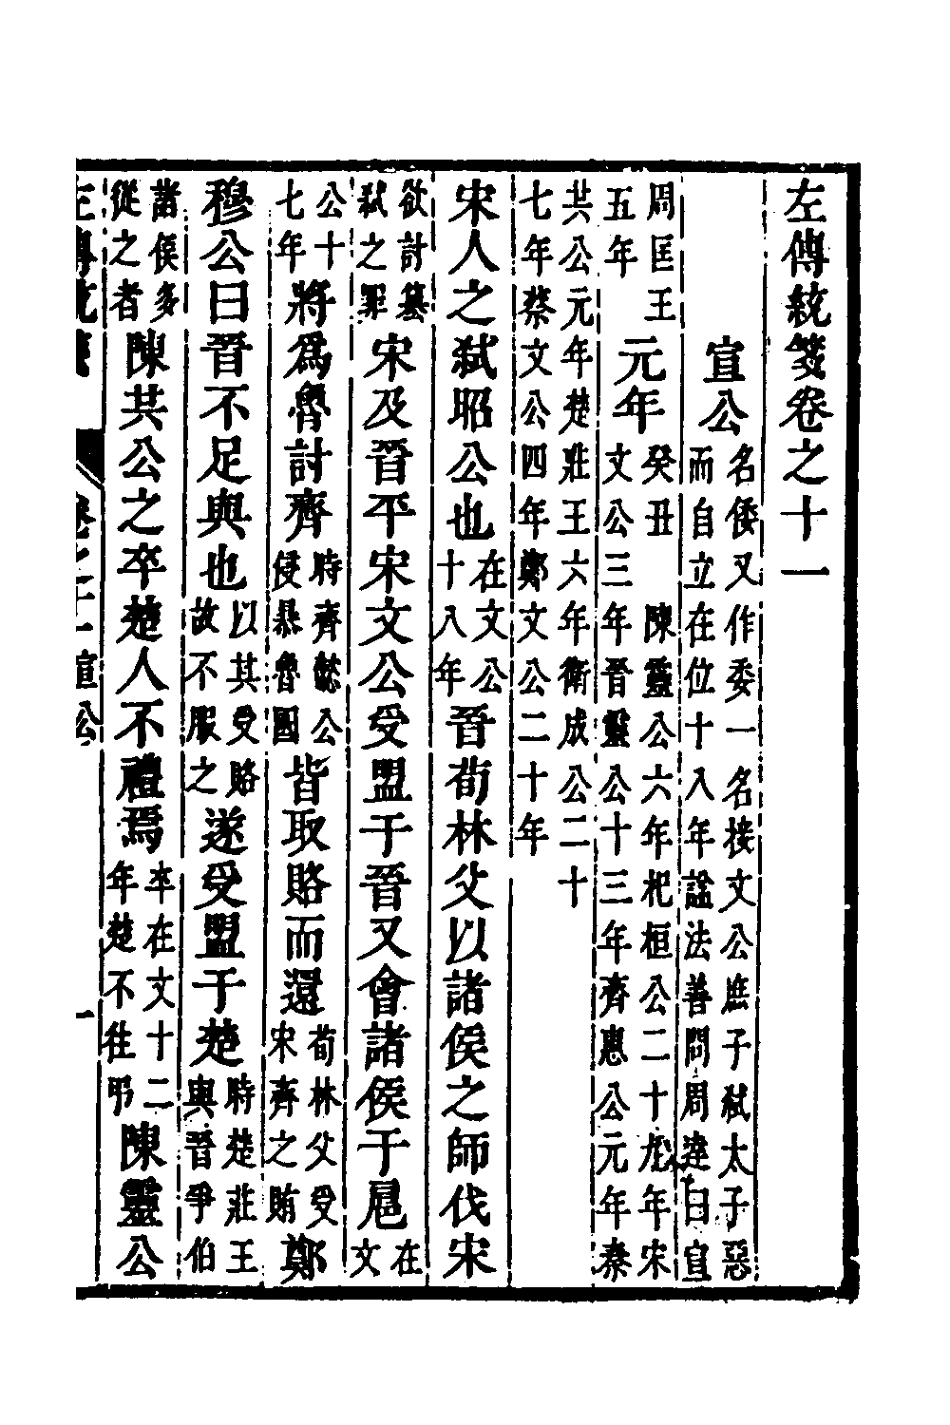 左傳統箋卷之十一
宣公名倭又作委一名接文公庶子弑太子惡而自立在位十八年諡法善問周達曰宣
周匡王五年元年癸丑　陳靈公六年杞桓公二十九年宋文公三年晉靈公十三年齊惠公元年秦
共公元年楚莊王六年衛成公二十七年蔡文公四年鄭文公二十年
宋人之弑昭公也在文公十八年晉荀林父以諸侯之師伐宋
欲討簒弑之罪宋及晉平宋文公受盟于晉又會諸侯于扈在文
公十七年將爲魯討齊時齊懿公侵暴魯國皆取賂而還荀林父受宋齊之賄鄭
穆公曰晉不足與也以其受賂故不服之遂受盟于楚時楚莊王與晉爭伯
諸侯多從之者陳共公之卒楚人不禮焉卒在文十二年楚不往弔陳靈公
左傳統箋　卷之十一宣公　一